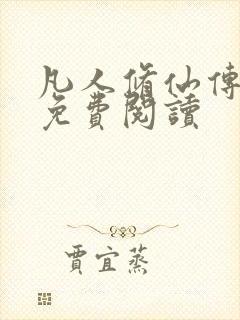 凡人脩仙傳
免費閱讀
賈宜蒸